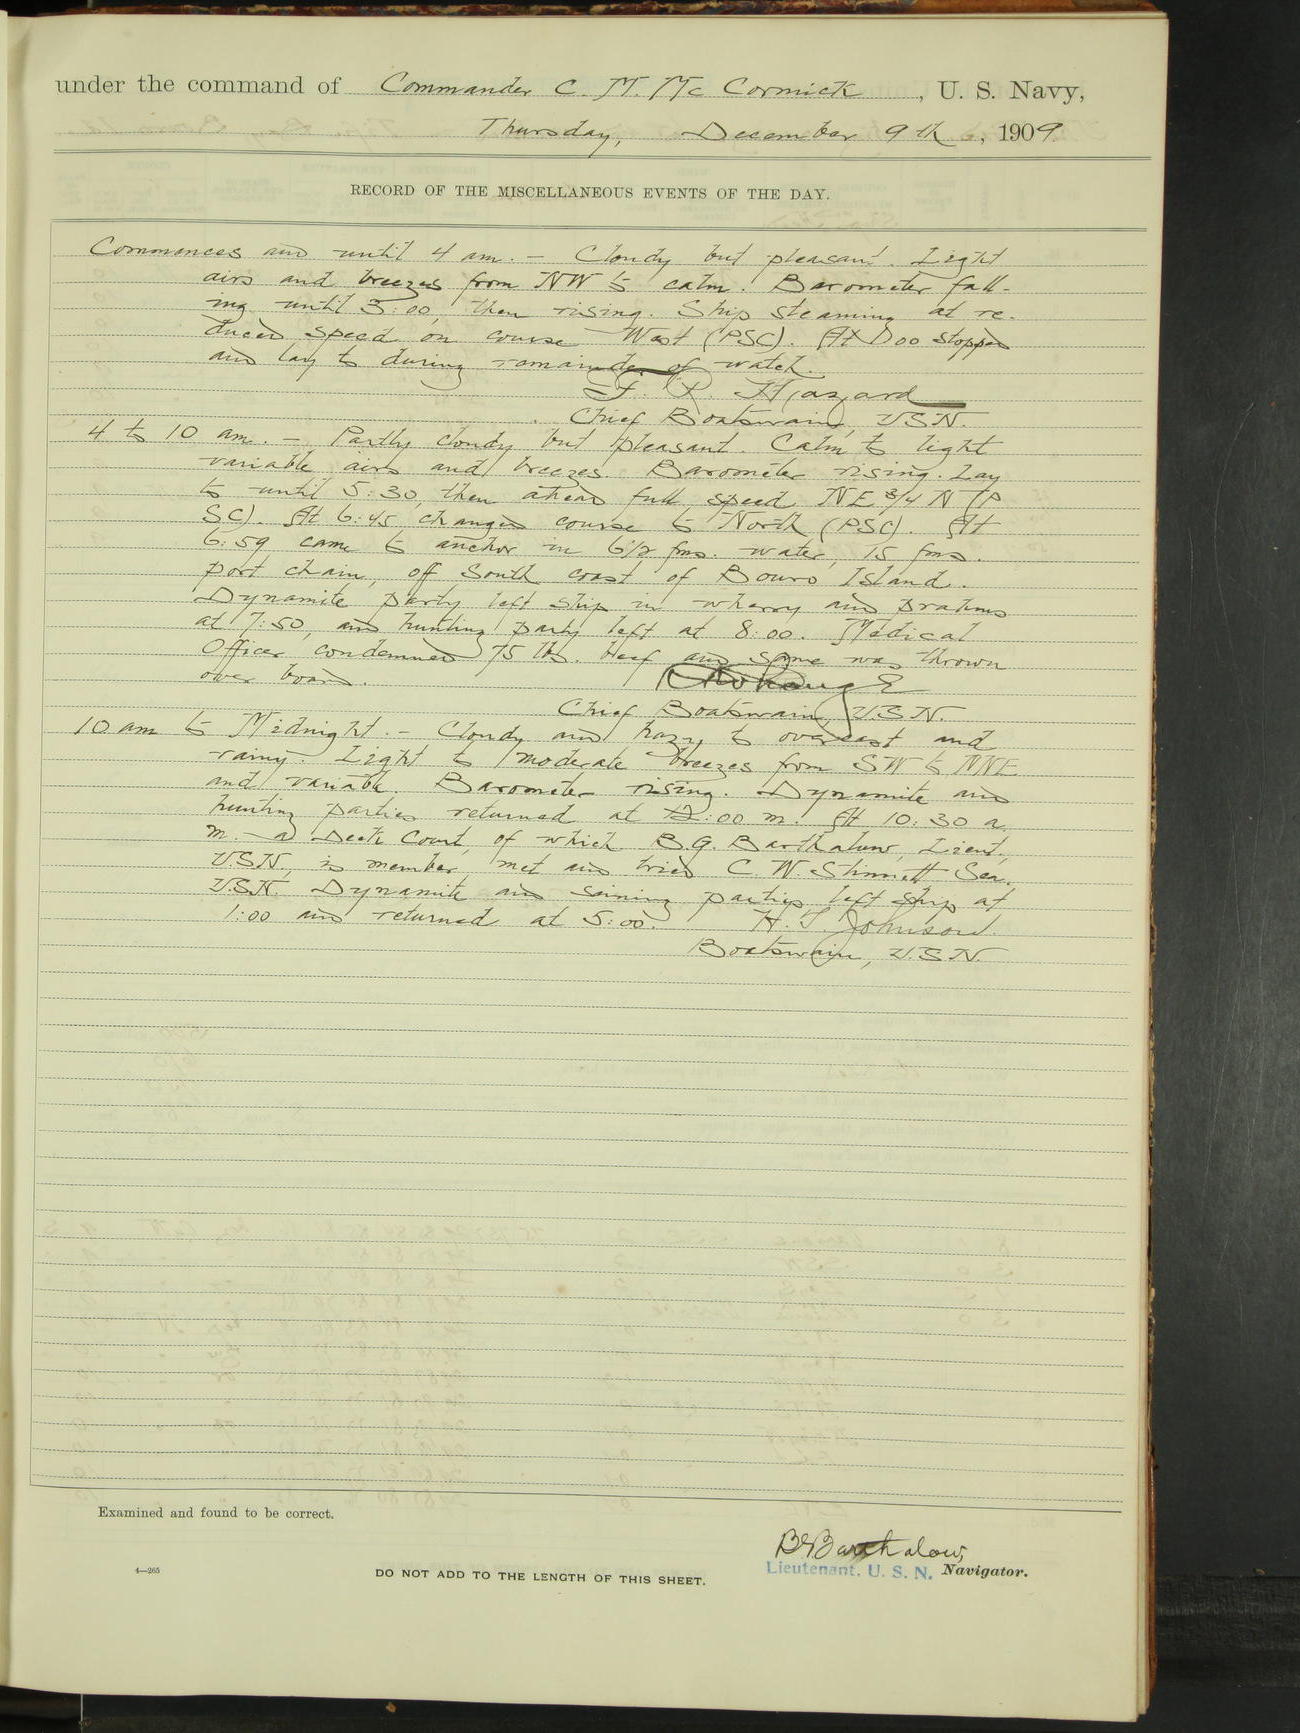 under the command of Commander C. M. Mc Cormick, U. S. Navy,
Thursday, December 9th, 1909.
RECORD OF THE MISCELLANEOUS EVENTS OF THE DAY.
Commences and until 4 am. - Cloudy but pleasant. Light
airs and breezes from NW to calm. Barometer fall-
ing until 3:00, then rising. Ship steaming at re-
duced speed on course West (PSC). At 1:00 stopped
and lay to during remainder of watch.
F. R. Hazard
Chief Boatswain, U.S.N.
4 to 10 am. - Partly cloudy but pleasant. Calm to light
variable airs and breezes. Barometer rising. Lay
to until 5:30, then ahead full speed NE 3/4 N (P
SC). At 6:45 changed course to North (PSC). At
6:59 came to anchor in 6 1/2 fms. water, 15 fms.
port chain, off South coast of Bouro Island.
Dynamite party left ship in wherry and prahms
at 7:50, and hunting party left at 8:00. Medical
Officer condemned 75 lbs. beef and same was thrown
over board.
Chief Boatswain, U.S.N.
10 am to Midnight. - Cloudy and hazy to overcast and
rainy. Light to moderate breezes from SW to NNE
and variable. Barometer rising. Dynamite and
hunting parties returned at 12:00 m. At 10:30 a.
m. a Deck Court, of which B.G. Barthalow, Lieut.,
USN, is member, met and tried C. W. Stinnett Sea.
U.S.N. Dynamite and seining parties left ship at
1:00 and returned at 5:00. H. T. Johnson.
Boatswain, U.S.N.
Examined and found to be correct.
BGBarthalow,
Lieutenant, U. S. N. Navigator.
4—265
DO NOT ADD TO THE LENGTH OF THIS SHEET.